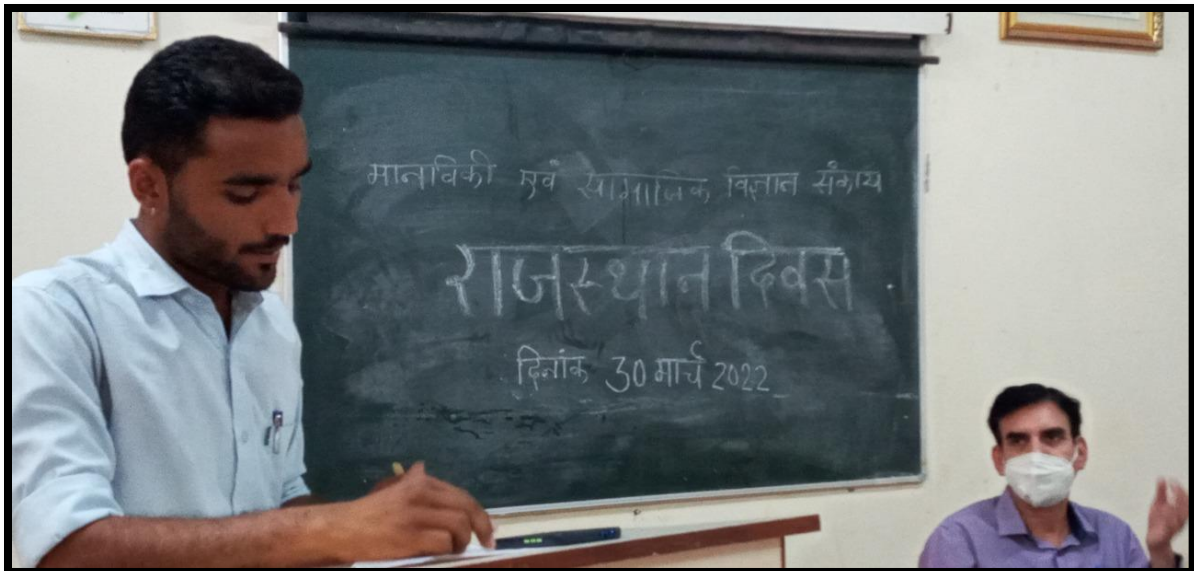 मानविकी एवं सामाजिक विज्ञान संकाय
राजस्थान दिवस
दिनांक 30 मार्च 2022